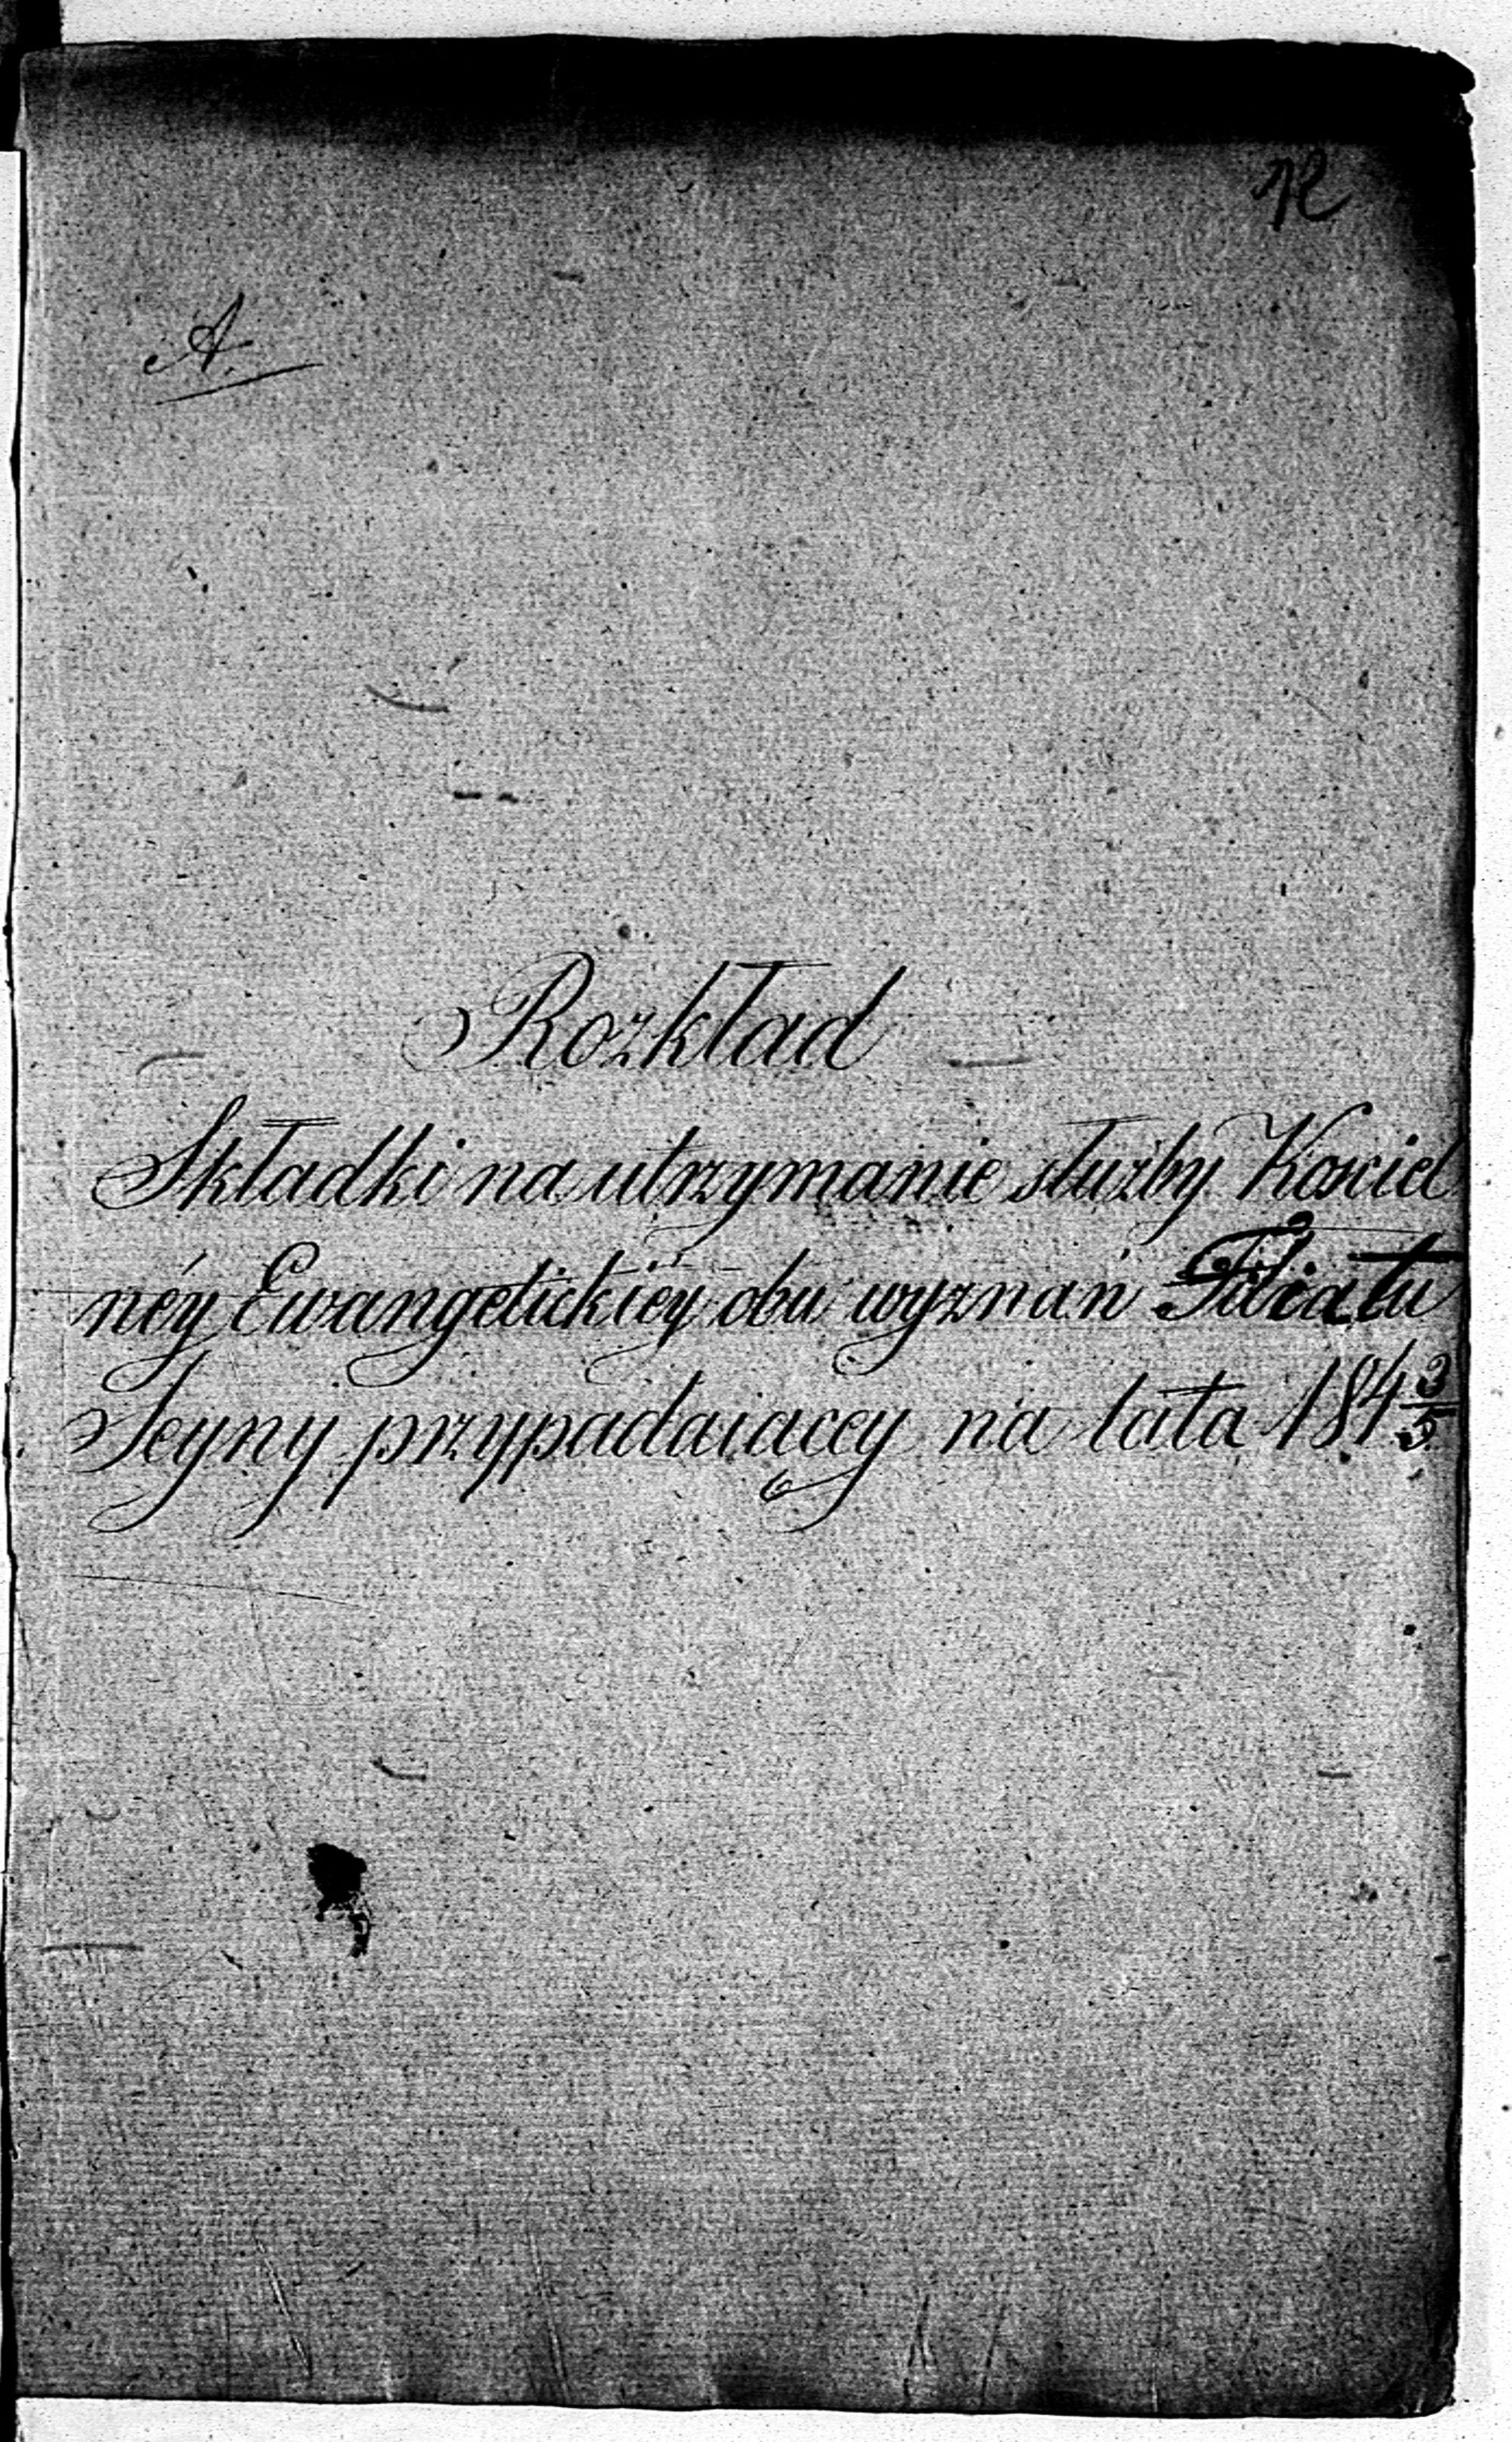 12
A.
Rozkład
Składki na utrzymanie służby Kosciel
néy Ewangelickiey obu wyznań Filiału
Seyny przypadaiącey na lata 184 3/5